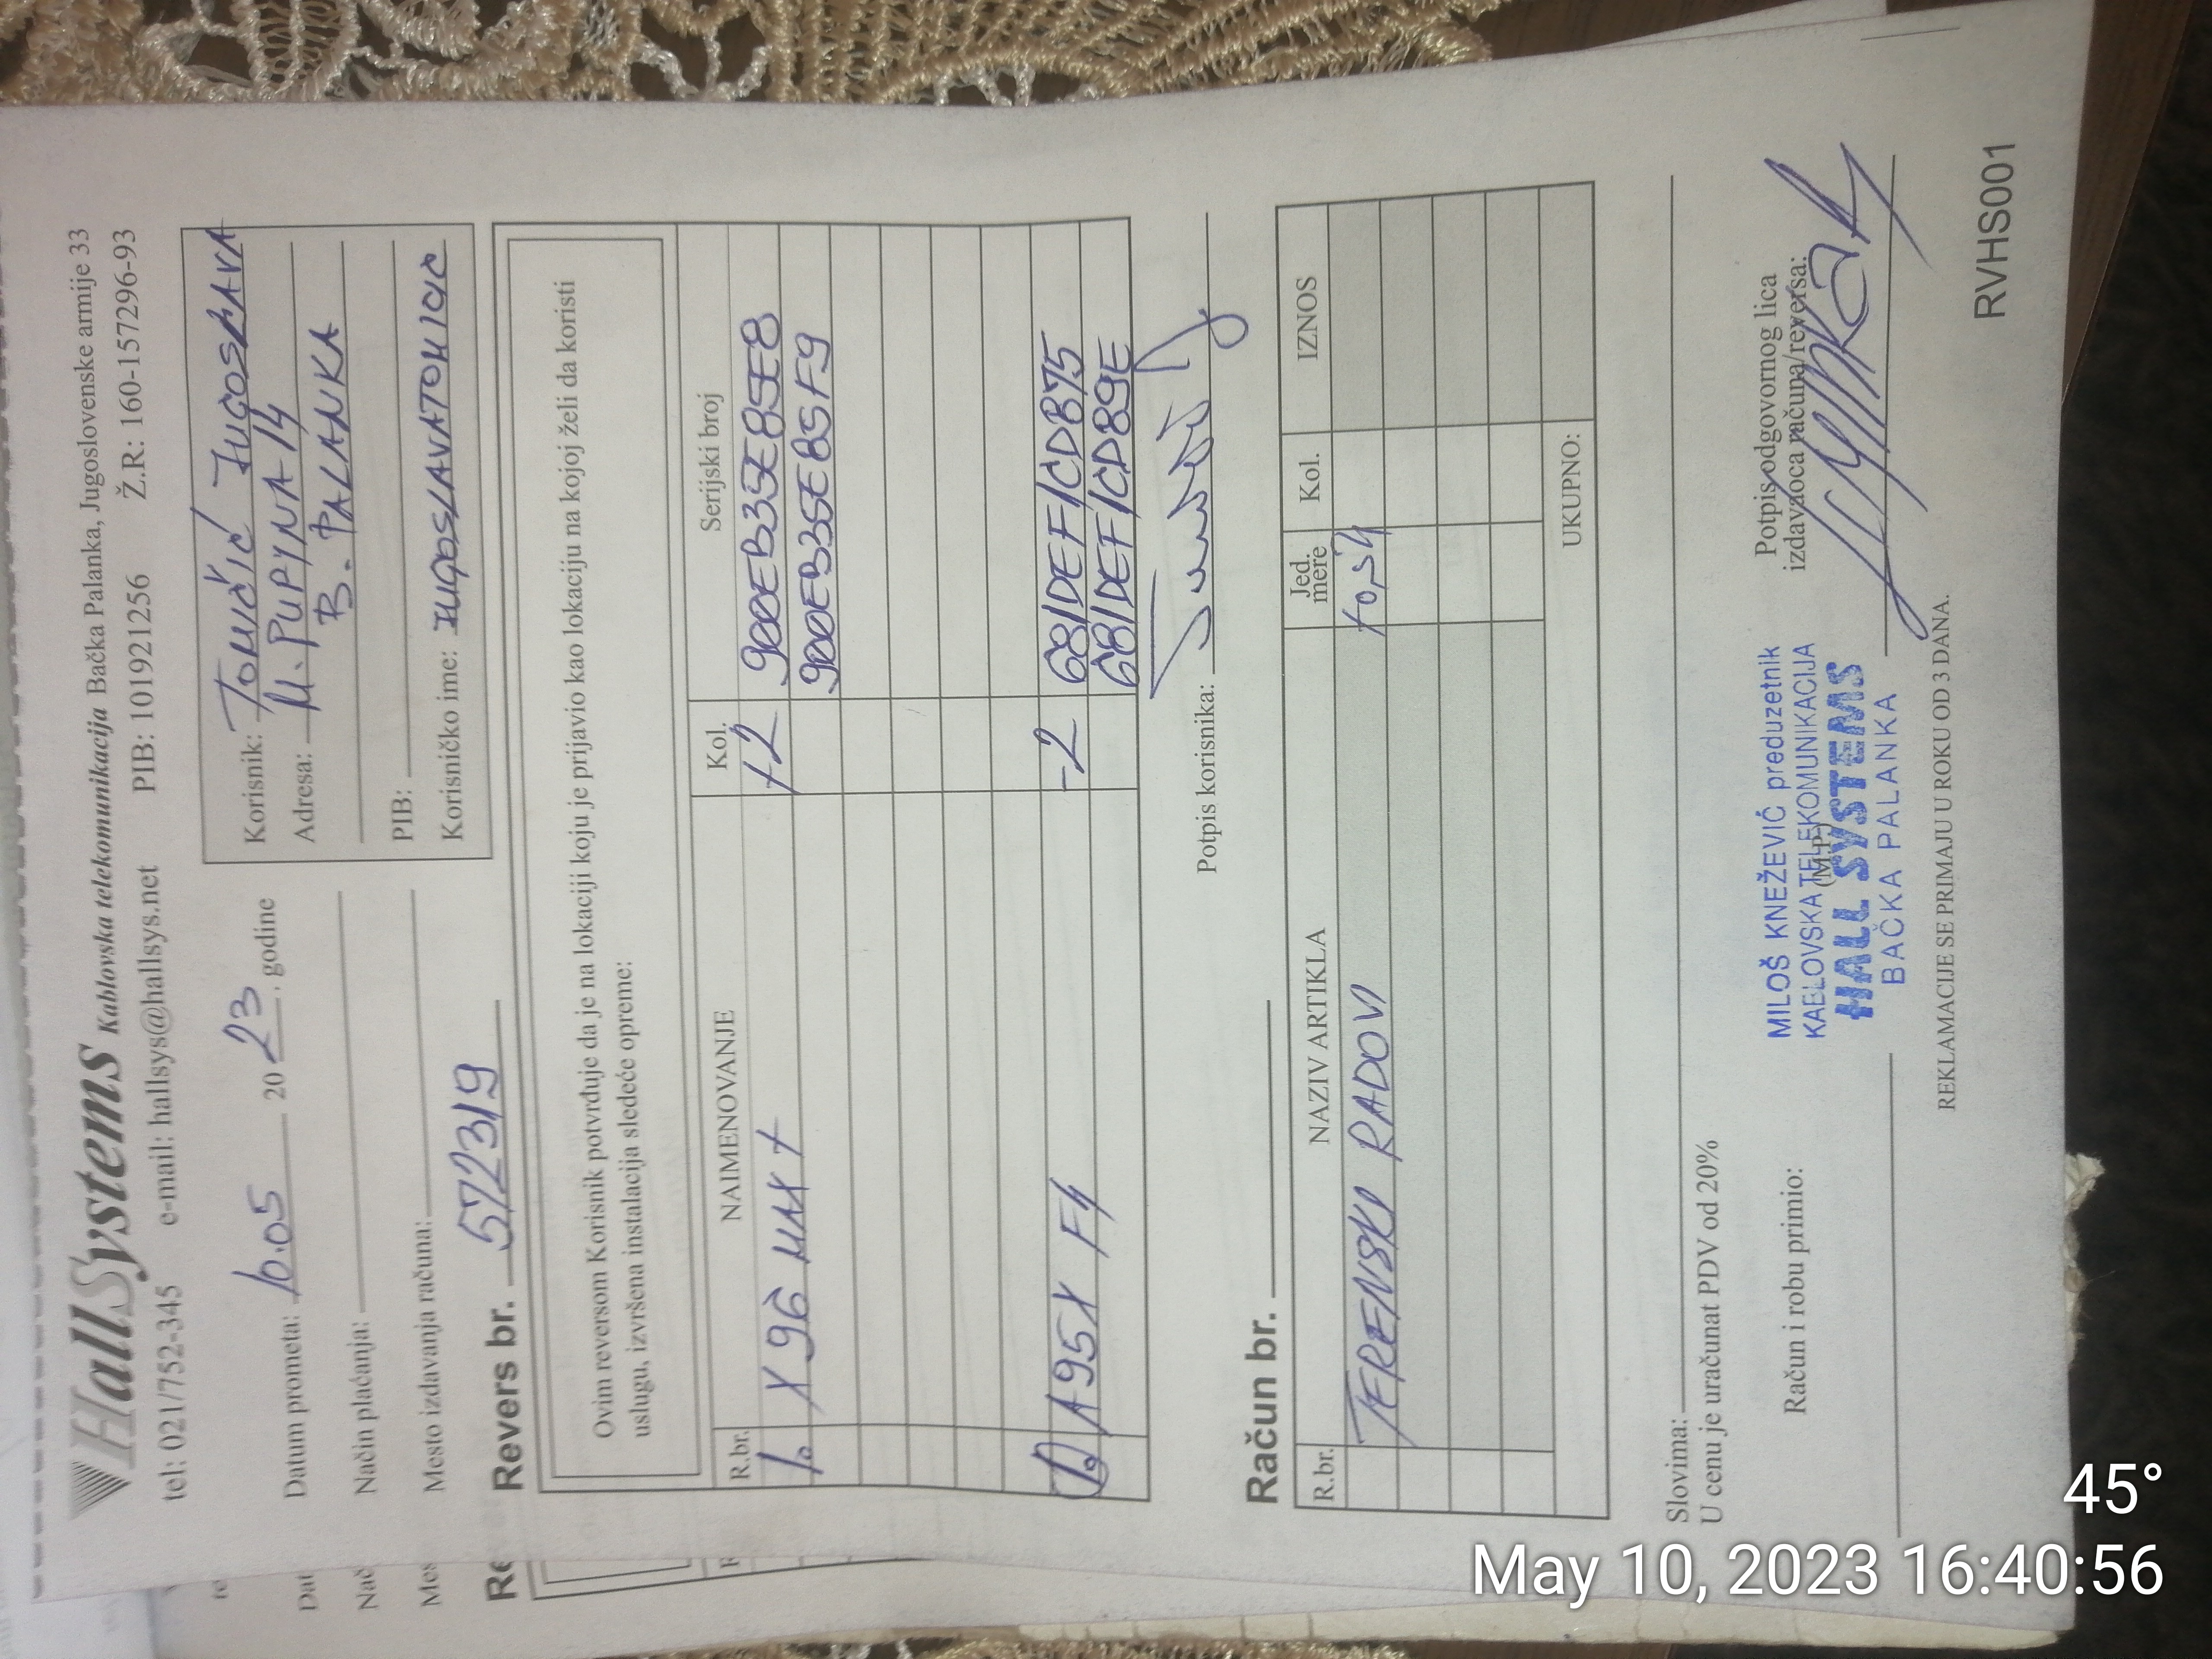 HallSystems Kablovska telekomunikacija Bačka Palanka, Jugoslovenske armije 33
tel: 021/752-345 e-mail: hallsys@hallsys.net PIB: 101921256 Ž.R.: 160-157296-93
Datum prometa: 10.05 2023. godine
Način plaćanja:
Mesto izdavanja računa:
Korisnik: Tomčić Jugoslava
Adresa: M. PUPINA 14
B. PALANKA
PIB:
Korisničko ime: JUGOSLAVATOMICIC
Revers br. 572319
Ovim reversom Korisnik potvrđuje da je na lokaciji koju je prijavio kao lokaciju na kojoj želi da koristi
uslugu, izvršena instalacija sledeće opreme:
R.br. NAIMENOVANJE Kol. Serijski broj
1. X 96 MAX + +2 900EB35E85E8
900EB35E85F9
1. A95X F4 -2 681DEF1CDB75
681DEF1CD89E
Potpis korisnika:
Račun br.
R.br. NAZIV ARTIKLA Jed. mere Kol. IZNOS
TERENSKI RADOVI
UKUPNO:
Slovima:
U cenu je uračunat PDV od 20%
Račun i robu primio:
(M.P.)
MILOŠ KNEŽEVIĆ preduzetnik
KABLOVSKA TELEKOMUNIKACIJA
HALL SYSTEMS
BAČKA PALANKA
Potpis odgovornog lica
izdavaoca računa/reversa:
REKLAMACIJE SE PRIMAJU U ROKU OD 3 DANA.
RVHS001
45°
May 10, 2023 16:40:56